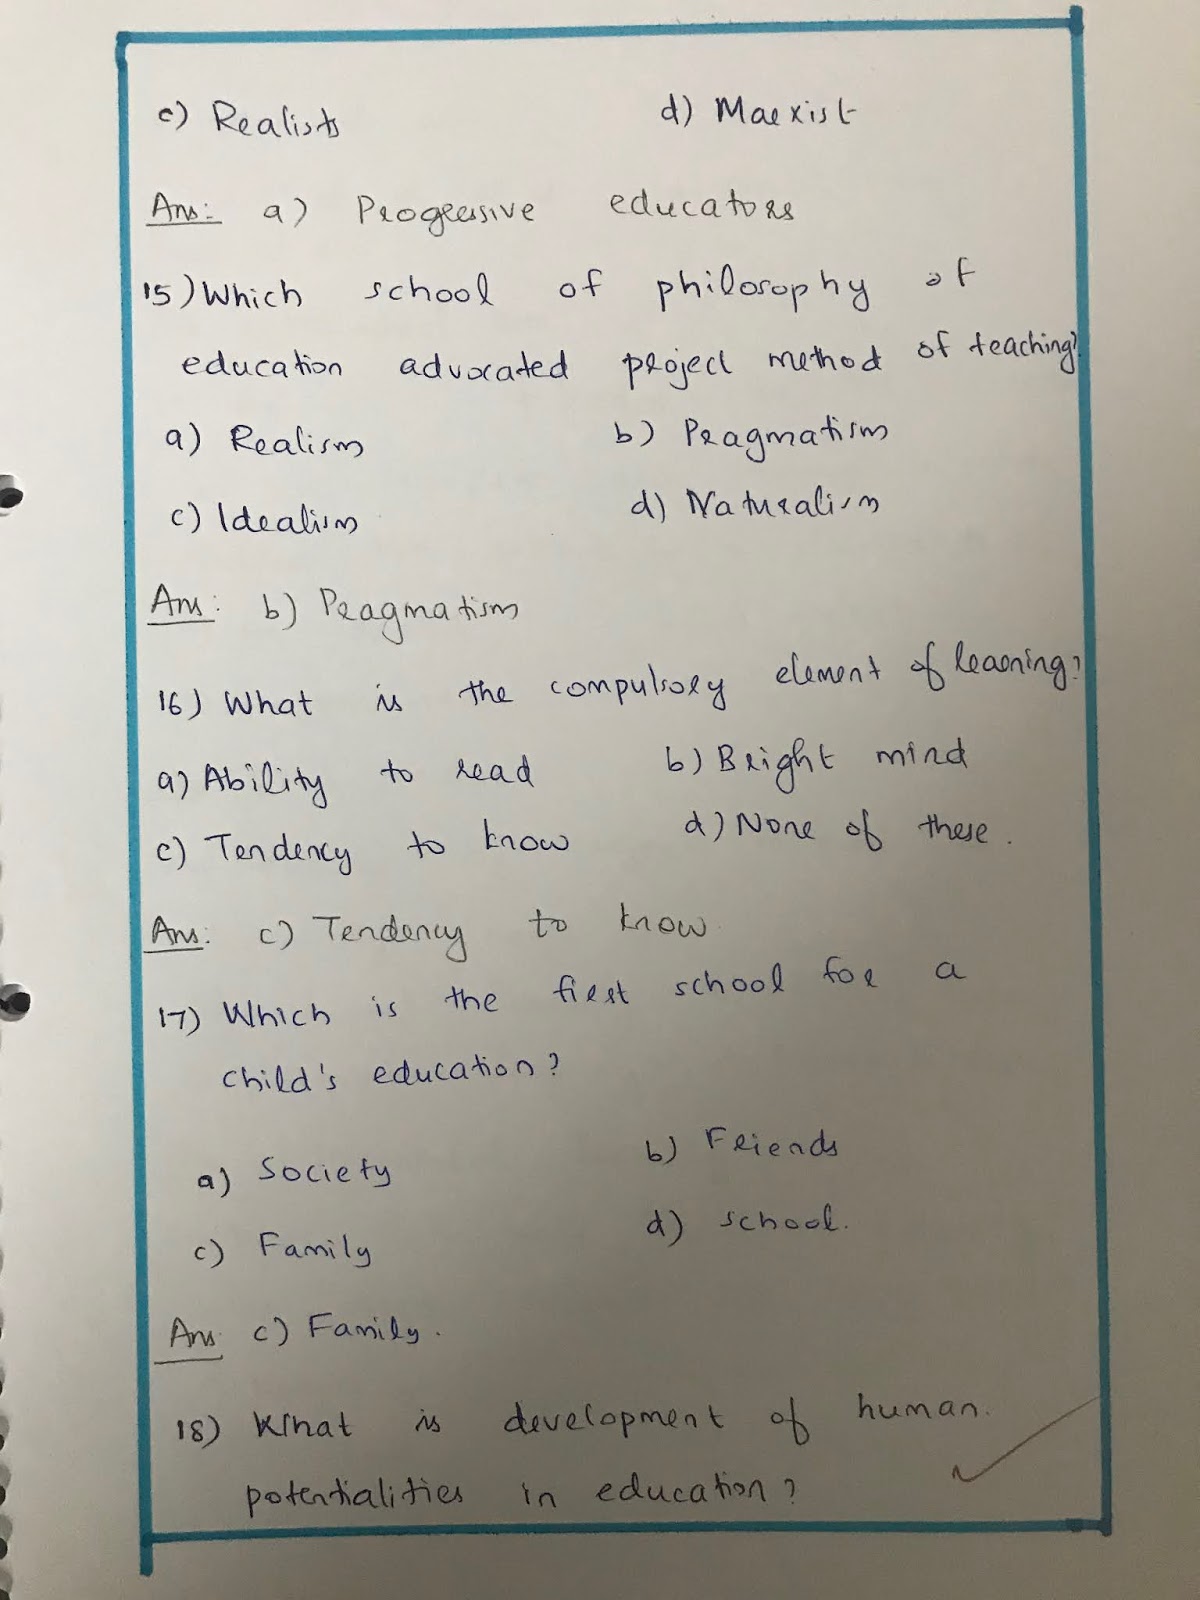 c) Realists d) Marxist
Ans:- a) Progressive educators
15) Which school of philosophy of
education advocated project method of teaching?
a) Realism b) Pragmatism
c) Idealism d) Naturalism
Ans: b) Pragmatism
16) What is the compulsory element of learning?
a) Ability to read b) Bright mind
c) Tendency to know d) None of these.
Ans: c) Tendency to know
17) Which is the first school for a
child's education?
a) Society b) Friends
c) Family d) school.
Ans c) Family.
18) What is development of human.
potentialities in education?